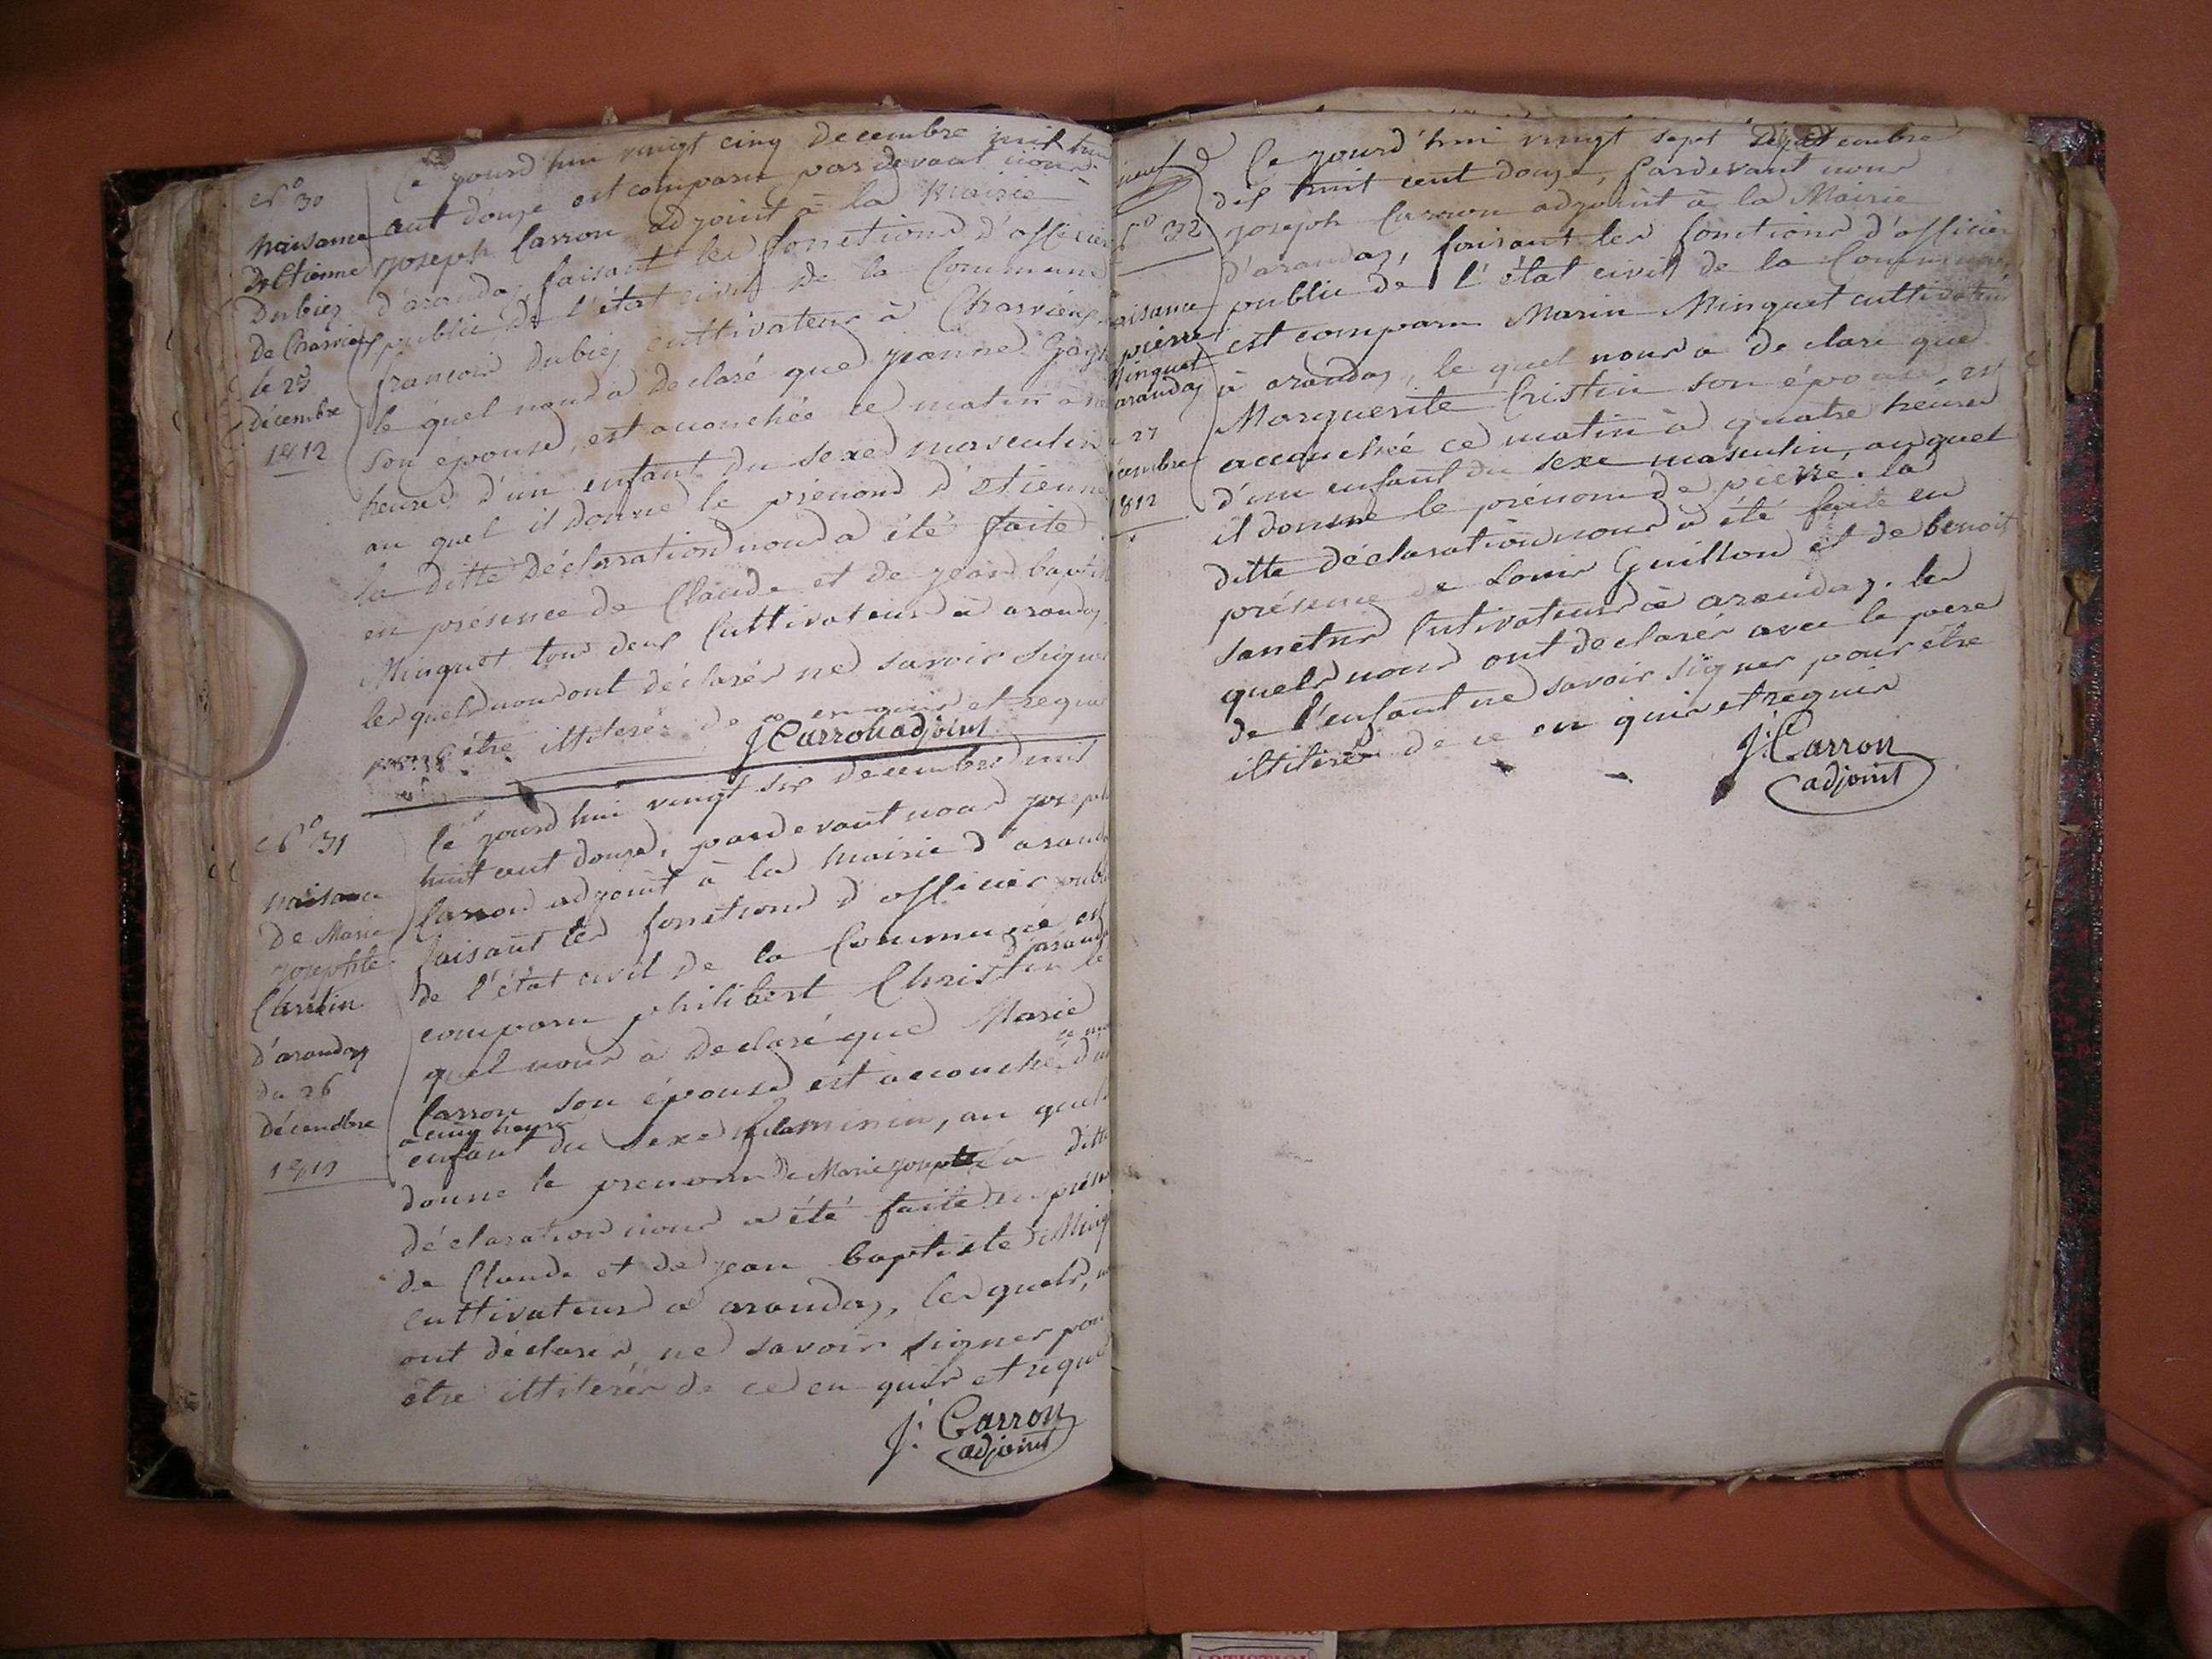 N° 30
naisance
D'Etienne
Dubiez
de Charvieux
le 25
décembre
1812
Ce jourd'hui vingt cinq decembre mil huit
cent douze est comparu pardevant nous
Joseph Carron adjoint à la Mairie
d'aranday faisant les fonctions d'officier
public de l'état civil de la Commune
françois Dubiez cultivateur à Charvieux
le quel nous a declaré que jeanne
son epouse, est acouchée ce matin à
heures d'un enfant du sexe masculin
au quel il donne le prénom d'etienne
la ditte déclaration nous a été faite
en présence de Claude et de jean baptiste
Minguet tous deux Cultivateurs à aranday
les quels nous ont déclarés ne savoir signer
pour être illiterés de ce en quis et requis
J Carron adjoint
N° 31
naisance
De Marie
josephte
Christin
d'aranday
du 26
décembre
1812
Ce jourd'hui vingt six decembre mil
huit cent douze, pardevant nous joseph
Carron adjoint à la Mairie d'aranday
faisant les fonctions d'officier public
de l'état civil de la Commune est
d'aranday
comparu philibert Christin le
quel nous à declaré que Marie
ce
Carron son épouse est acouchée d'un
a cinq heures
enfant du sexe feminin, au quel
donne le prenom de Marie josephte la ditte
déclaration nous a été faite en
de Claude et de jean baptiste
cultivateurs à aranday, les quels,
ont déclarés, ne savoir signer pour
être illiterés de ce en quis et requis
J. Carron
adjoint
N° 32
naisance
pierre
Minguet
aranday
27
1812
Ce jourd'hui vingt sept
dix huit cent douze, Pardevant nous
joseph Carron adjoint à la Mairie
d'aranday, faisant les fonctions d'officier
public de l'état civil de la Commune
est comparu Marin Minguet cultivateur
à aranday, le quel nous a declaré que
Marguerite Cristin son épouse, est
accouchée ce matin à quatre heures
d'un enfant du sexe masculin, auquel
il donne le prénom de pierre. la
ditte déclaration nous à été faite en
présence de Louis Guillon et de benoit
Cultivateurs à aranday. les
quels nous ont declarés avec le pere
de l'enfant ne savoir signer pour être
illiterés de ce en quis et requis
J. Carron
adjoint